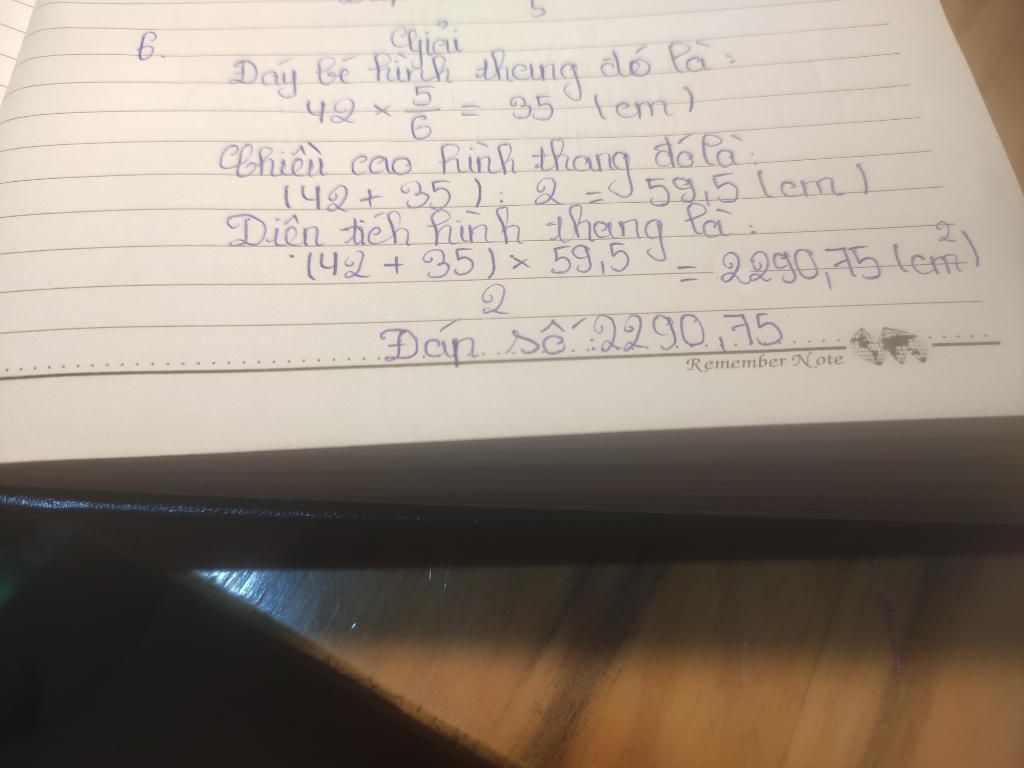 6.
Chiều
Dáy bé hình thang đó là:
42 × 5/6 = 35 (cm)
Chiều cao hình thang đó là:
(42 + 35) : 2 = 59,5 (cm)
Diên tích hình thang là:
(42 + 35) × 59,5 / 2 = 2290,75 (cm²)
Đáp số: 2290,75
Remember Note